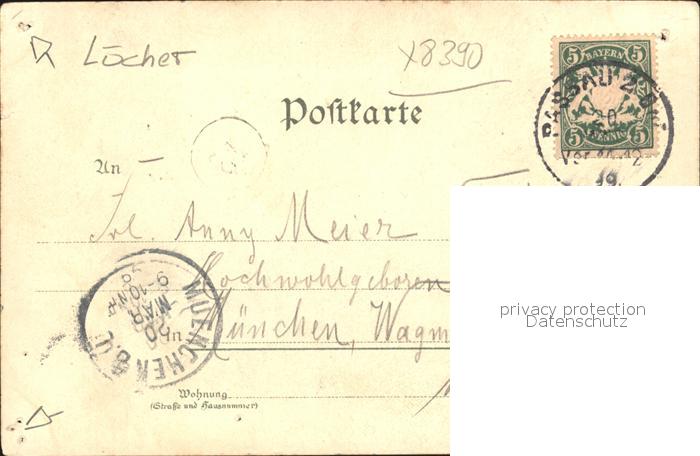 Löcher
x8390
Postkarte
5 BAYERN 5
5 PFENNIG 5
PASSAU 2
20
Vor. 11-12
19
An
Frl. Anny Meier
Hochwohlgeboren
in München, Wagm
MUENCHEN
20
MAR
9-10
Wohnung
(Straße und Hausnummer)
privacy protection
Datenschutz